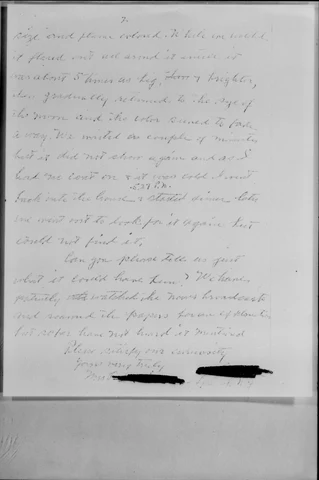 7.
size and flame colored. While we watched
it flared out all around it until it
was about 5 times as big, twice brighter,
then gradually returned to the size of
the moon and the color seemed to fade
away. We waited a couple of minutes
but it did not show again and as I
had no coat on & it was cold I went
5:37 P.M.
back into the house & started dinner. Later
we went out to look for it again but
could not find it.
Can you please tell us just
what it could have been? We have
watched the news broadcasts
and scanned the papers
but so far have not heard it mentioned
Please satisfy our curiosity
Yours very truly
Mrs.